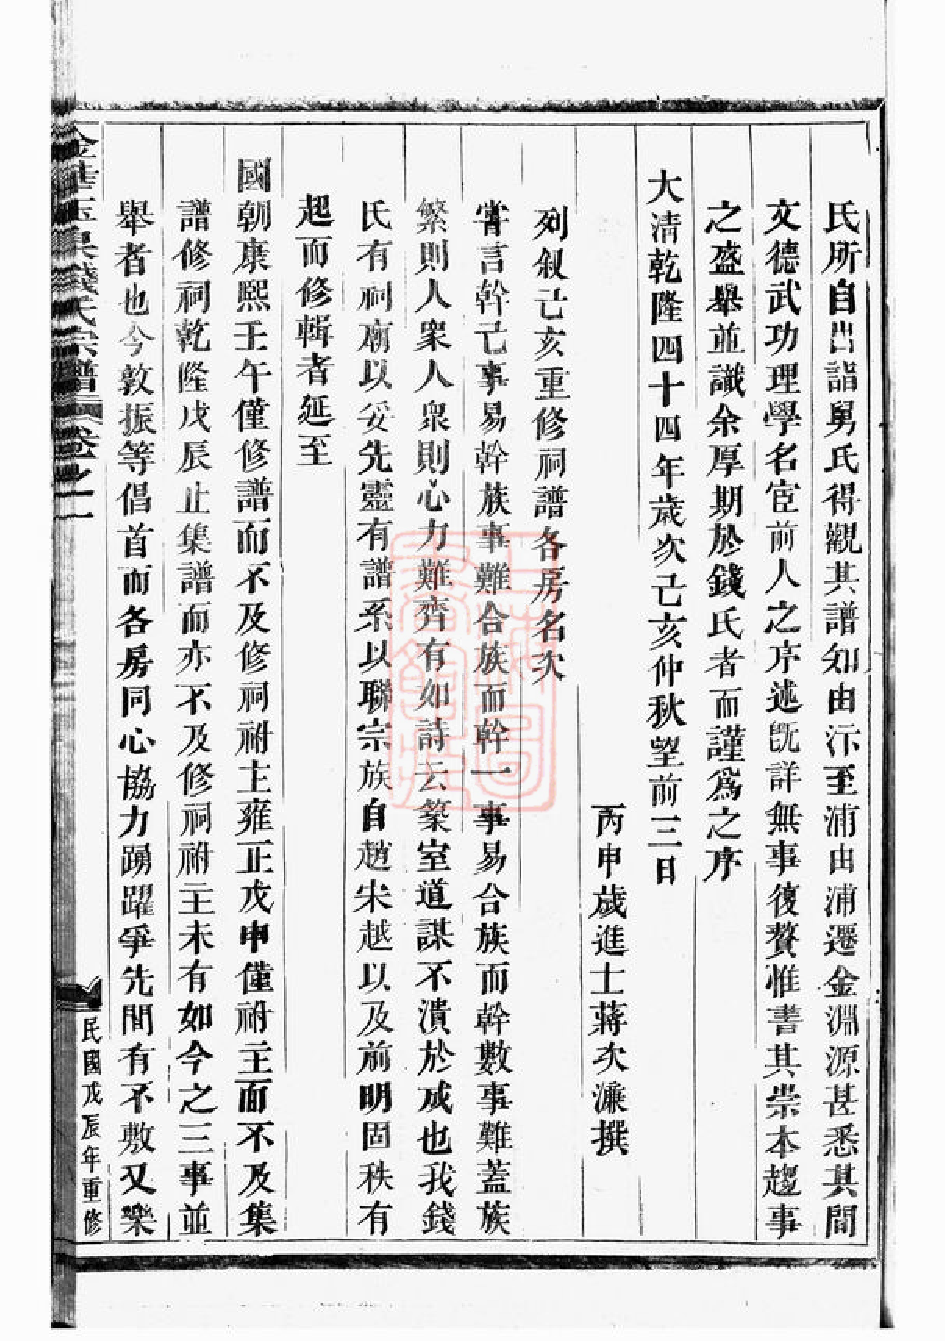 氏所自出詣舅氏得觀其譜知由汴至浦由浦遷金淵源甚悉其間
文德武功理學名宦前人之序述旣詳無事復贅惟書其崇本趨事
之盛舉並識余厚期於錢氏者而謹爲之序
大清乾隆四十四年歲次己亥仲秋望前三日
丙申歲進士蔣次濂撰
列叙己亥重修祠譜各房名次
嘗言幹己事易幹族事難合族而幹一事易合族而幹數事難蓋族
繁則人人衆人人衆則心力難齊有如詩云築室道謀不潰於成也我錢
氏有祠廟以妥先靈有譜系以聯宗族自趙宋越以及前明固秩有
起而修輯者延至
國朝康熙壬午僅修譜而不及修祠祔主雍正戊申僅祔主而不及集
譜修祠乾隆戊辰止集譜而亦不及修祠祔主未有如今之三事並
舉者也今敦振等倡首而各房同心協力踴躍爭先間有不敷又樂
錢氏宗譜 卷之一
民國戊辰年重修